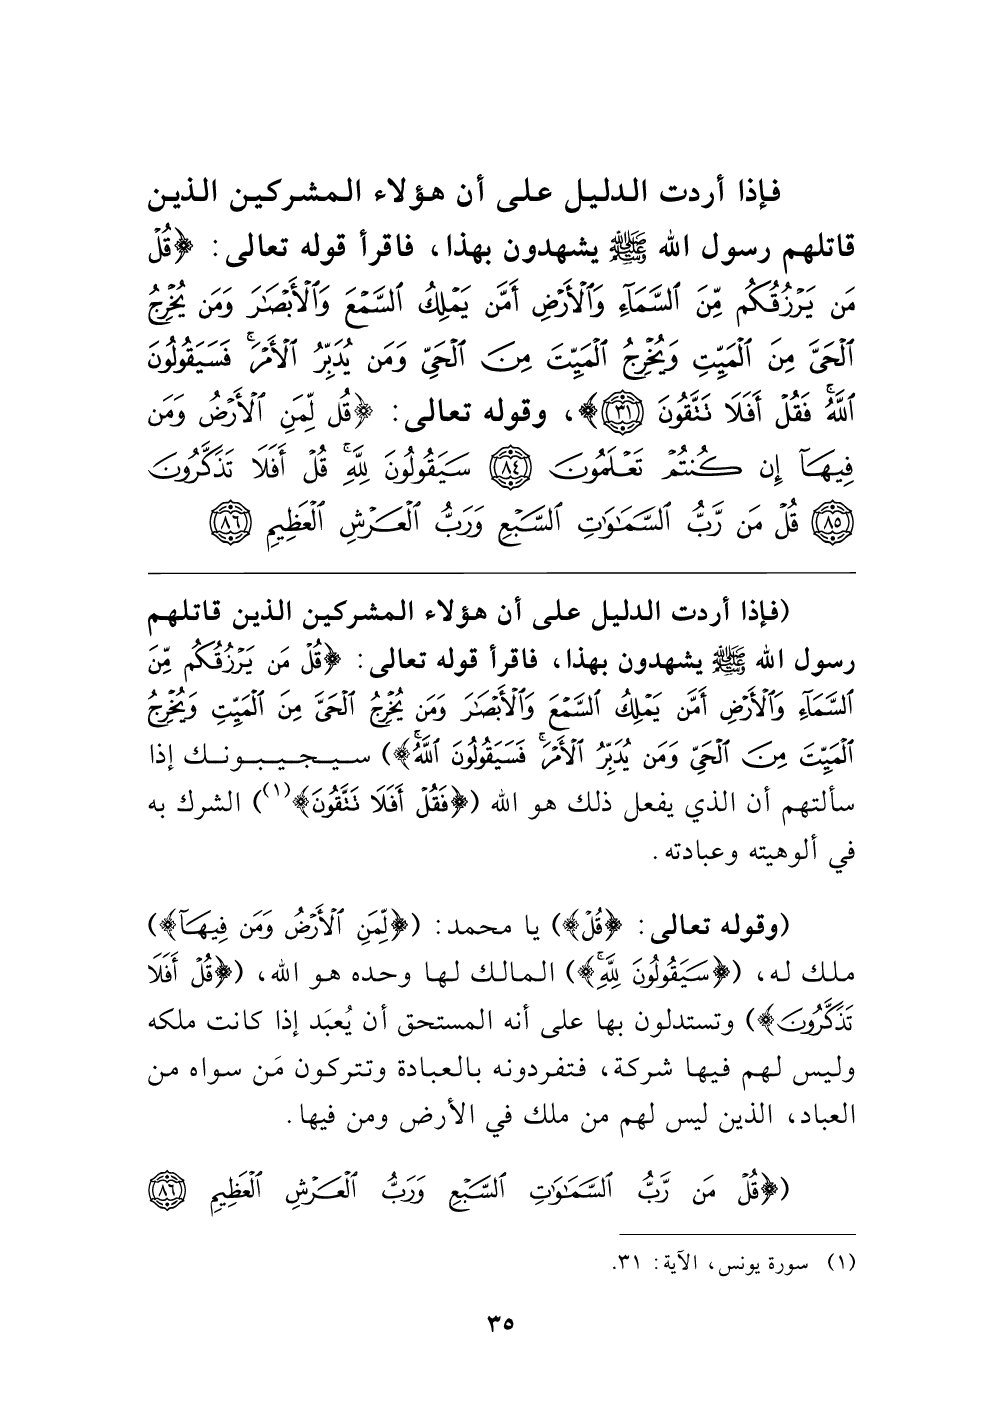 فإذا أردت الدليل على أن هؤلاء المشركين الذين
قاتلهم رسول الله ﷺ يشهدون بهذا، فاقرأ قوله تعالى: ﴿قُلۡ
مَن يَرۡزُقُكُم مِّنَ ٱلسَّمَآءِ وَٱلۡأَرۡضِ أَمَّن يَمۡلِكُ ٱلسَّمۡعَ وَٱلۡأَبۡصَٰرَ وَمَن يُخۡرِجُ
ٱلۡحَيَّ مِنَ ٱلۡمَيِّتِ وَيُخۡرِجُ ٱلۡمَيِّتَ مِنَ ٱلۡحَيِّ وَمَن يُدَبِّرُ ٱلۡأَمۡرَۚ فَسَيَقُولُونَ
ٱللَّهُۚ فَقُلۡ أَفَلَا تَتَّقُونَ ٣١﴾، وقوله تعالى: ﴿قُل لِّمَنِ ٱلۡأَرۡضُ وَمَن
فِيهَآ إِن كُنتُمۡ تَعۡلَمُونَ ٨٤ سَيَقُولُونَ لِلَّهِۚ قُلۡ أَفَلَا تَذَكَّرُونَ
٨٥ قُلۡ مَن رَّبُّ ٱلسَّمَٰوَٰتِ ٱلسَّبۡعِ وَرَبُّ ٱلۡعَرۡشِ ٱلۡعَظِيمِ ٨٦
(فإذا أردت الدليل على أن هؤلاء المشركين الذين قاتلهم
رسول الله ﷺ يشهدون بهذا، فاقرأ قوله تعالى: ﴿قُلۡ مَن يَرۡزُقُكُم مِّنَ
ٱلسَّمَآءِ وَٱلۡأَرۡضِ أَمَّن يَمۡلِكُ ٱلسَّمۡعَ وَٱلۡأَبۡصَٰرَ وَمَن يُخۡرِجُ ٱلۡحَيَّ مِنَ ٱلۡمَيِّتِ وَيُخۡرِجُ
ٱلۡمَيِّتَ مِنَ ٱلۡحَيِّ وَمَن يُدَبِّرُ ٱلۡأَمۡرَۚ فَسَيَقُولُونَ ٱللَّهُۚ﴾) سيجيبونك إذا
سألتهم أن الذي يفعل ذلك هو الله (﴿فَقُلۡ أَفَلَا تَتَّقُونَ﴾(١)) الشرك به
في ألوهيته وعبادته.
(وقوله تعالى: ﴿قُلۡ﴾) يا محمد: (﴿لِّمَنِ ٱلۡأَرۡضُ وَمَن فِيهَآ﴾)
ملك له، (﴿سَيَقُولُونَ لِلَّهِۚ﴾) المالك لها وحده هو الله، (﴿قُلۡ أَفَلَا
تَذَكَّرُونَ﴾) وتستدلون بها على أنه المستحق أن يُعبَد إذا كانت ملكه
وليس لهم فيها شركة، فتفردونه بالعبادة وتتركون مَن سواه من
العباد، الذين ليس لهم من ملك في الأرض ومن فيها.
(﴿قُلۡ مَن رَّبُّ ٱلسَّمَٰوَٰتِ ٱلسَّبۡعِ وَرَبُّ ٱلۡعَرۡشِ ٱلۡعَظِيمِ ٨٦
(١) سورة يونس، الآية: ٣١.
٣٥